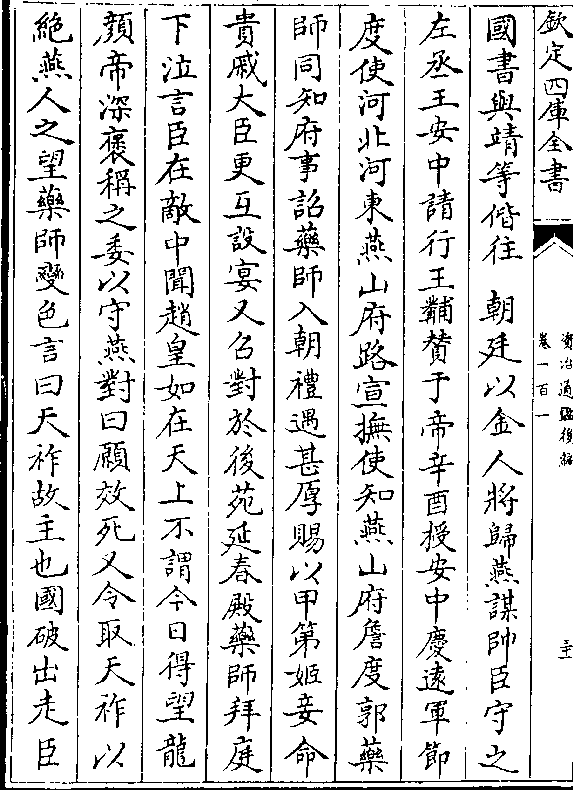 欽定四庫全書
資治通鑑後編
卷一百一
國書與靖等偕往　朝廷以金人將歸燕謀帥臣守之
左丞王安中請行王黼贊于帝辛酉授安中慶遠軍節
度使河北河東燕山府路宣撫使知燕山府詹度郭藥
師同知府事詔藥師入朝禮遇甚厚賜以甲第姬妾命
貴戚大臣更互設宴又召對於後苑延春殿藥師拜庭
下泣言臣在敵中聞趙皇如在天上不謂今日得望龍
顏帝深褒稱之委以守燕對曰願效死又令取天祚以
絶燕人之望藥師變色言曰天祚故主也國破出走臣